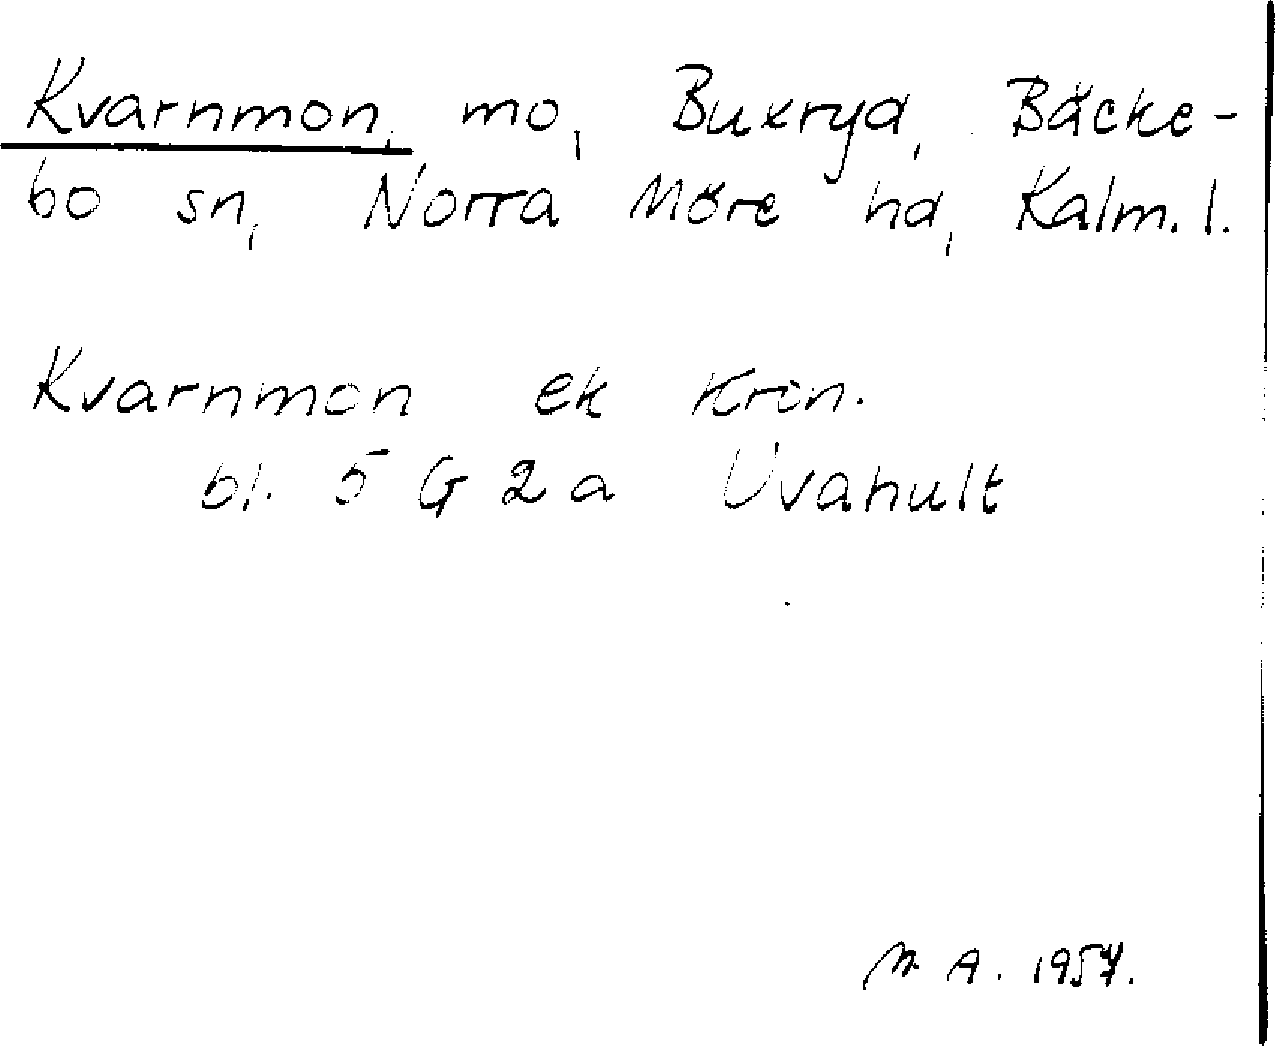 Kvarnmon, mo, Buxryd, Bäcke-
bo sn, Norra Möre hd, Kalm. l.
Kvarnmon ek Kron.
bl. 5 G 2 a Uvahult
A. 1957.